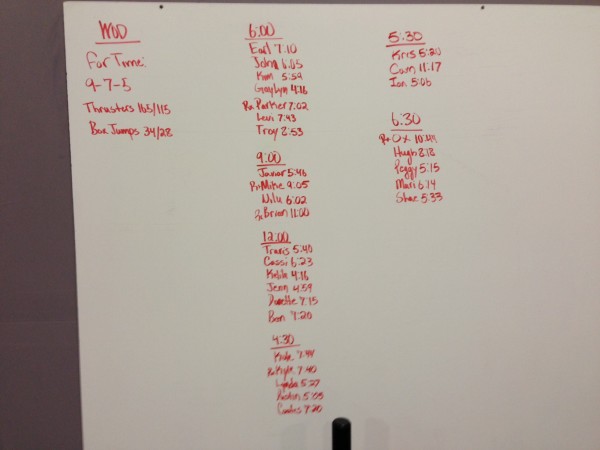 WOD
For Time:
9-7-5
Thrusters 165/115
Box Jumps 34/28
6:00
Earl 7:10
John 6:05
Kim 5:59
Graylyn 4:16
Rx Parker 7:02
Levi 7:43
Troy 8:53
9:00
Javier 5:46
Rx Mike 9:05
Nilu 6:02
Rx Brian 11:00
12:00
Travis 5:40
Cassi 6:23
4:16
Jenn 4:59
Danette 7:15
Ben 7:20
4:30
7:44
Rx Kyle 7:40
Lynda 5:27
5:05
Carlos 7:20
5:30
Kris 5:20
Cam 11:17
Ian 5:06
6:30
Rx Ox 10:49
Hugh 8:18
Peggy 5:15
Mari 6:14
Shae 5:33